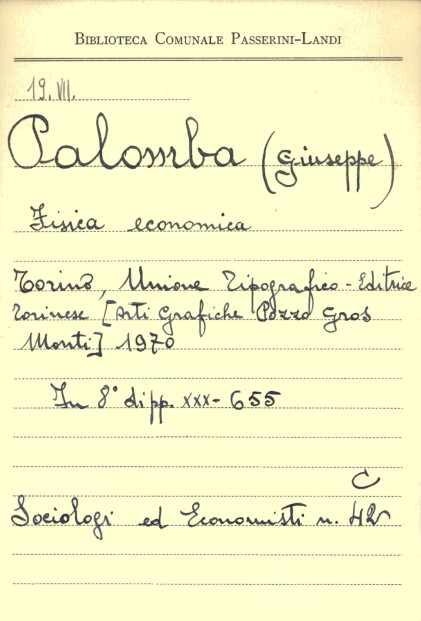 BIBLIOTECA COMUNALE PASSERINI-LANDI
19. VII.
Palomba (Giuseppe)
Fisica economica
Torino, Unione Tipografico-Editrice
Torinese [Arti Grafiche Pozzo Gros
Monti] 1970
In 8° di pp. XXX-655
C
Sociologi ed Economisti n. 42